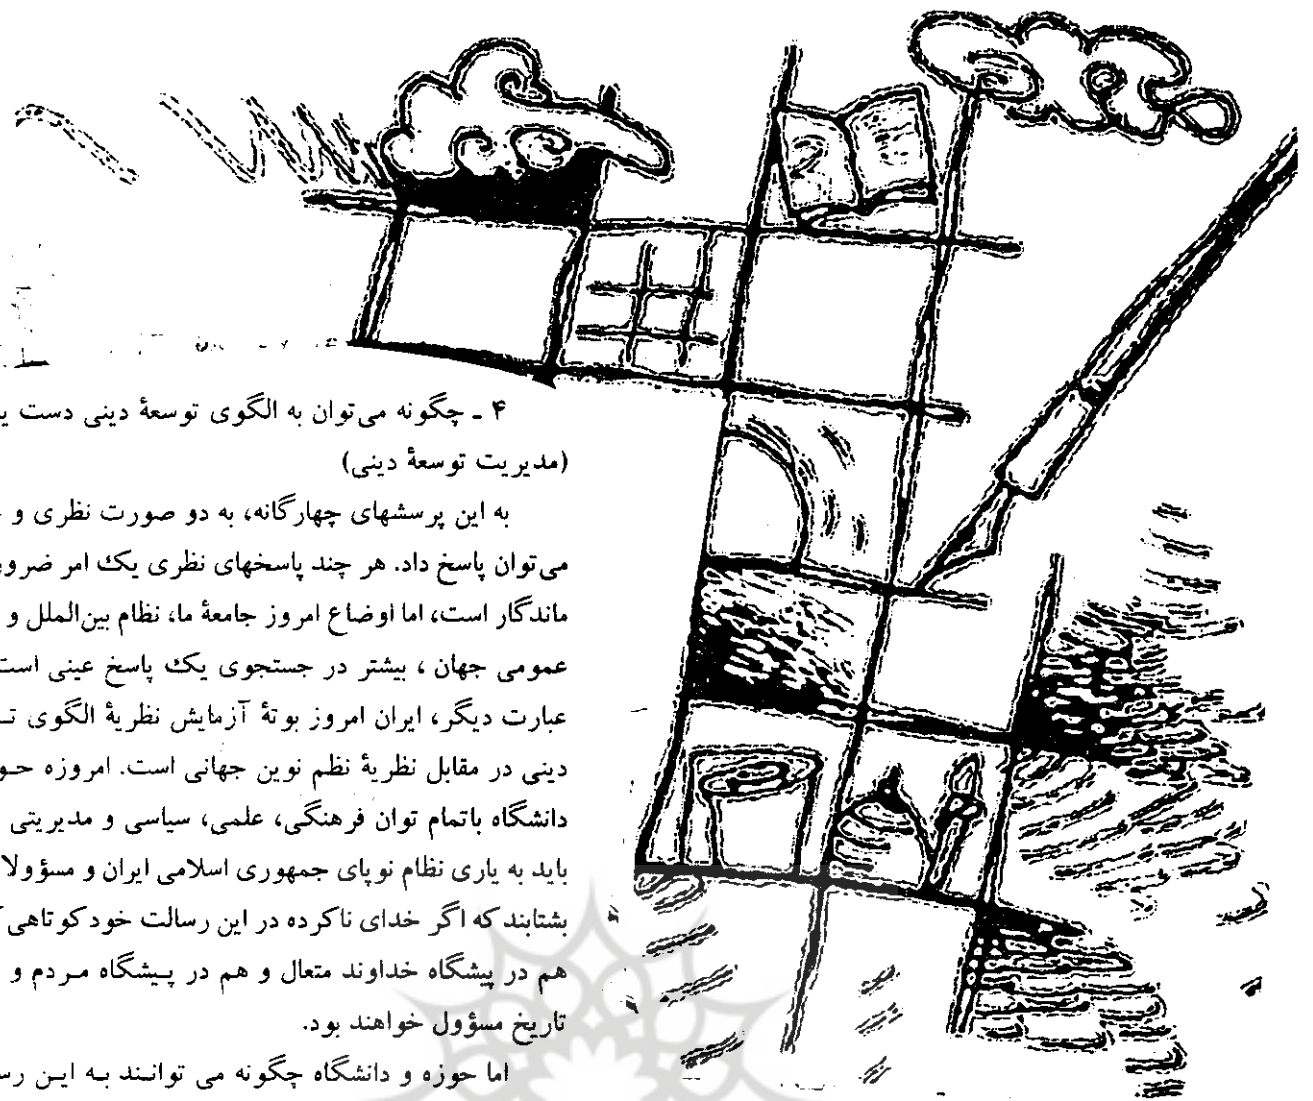 ۴ ـ چگونه می‌توان به الگوی توسعهٔ دینی دست
(مدیریت توسعهٔ دینی)
به این پرسشهای چهارگانه، به دو صورت نظری و
می‌توان پاسخ داد. هر چند پاسخهای نظری یک امر
ماندگار است، اما اوضاع امروز جامعهٔ ما، نظام بین‌الملل و
عمومی جهان ، بیشتر در جستجوی یک پاسخ عینی است
عبارت دیگر، ایران امروز بوتهٔ آزمایش نظریهٔ الگوی
دینی در مقابل نظریهٔ نظم نوین جهانی است. امروزه
دانشگاه باتمام توان فرهنگی، علمی، سیاسی و مدیریتی
باید به یاری نظام نوپای جمهوری اسلامی ایران و
بشتابند که اگر خدای ناکرده در این رسالت خود کوتاهی
هم در پیشگاه خداوند متعال و هم در پـیشگاه مـردم و
تاریخ مسؤول خواهند بود.
اما حوزه و دانشگاه چگونه می توانـند بـه ایـن